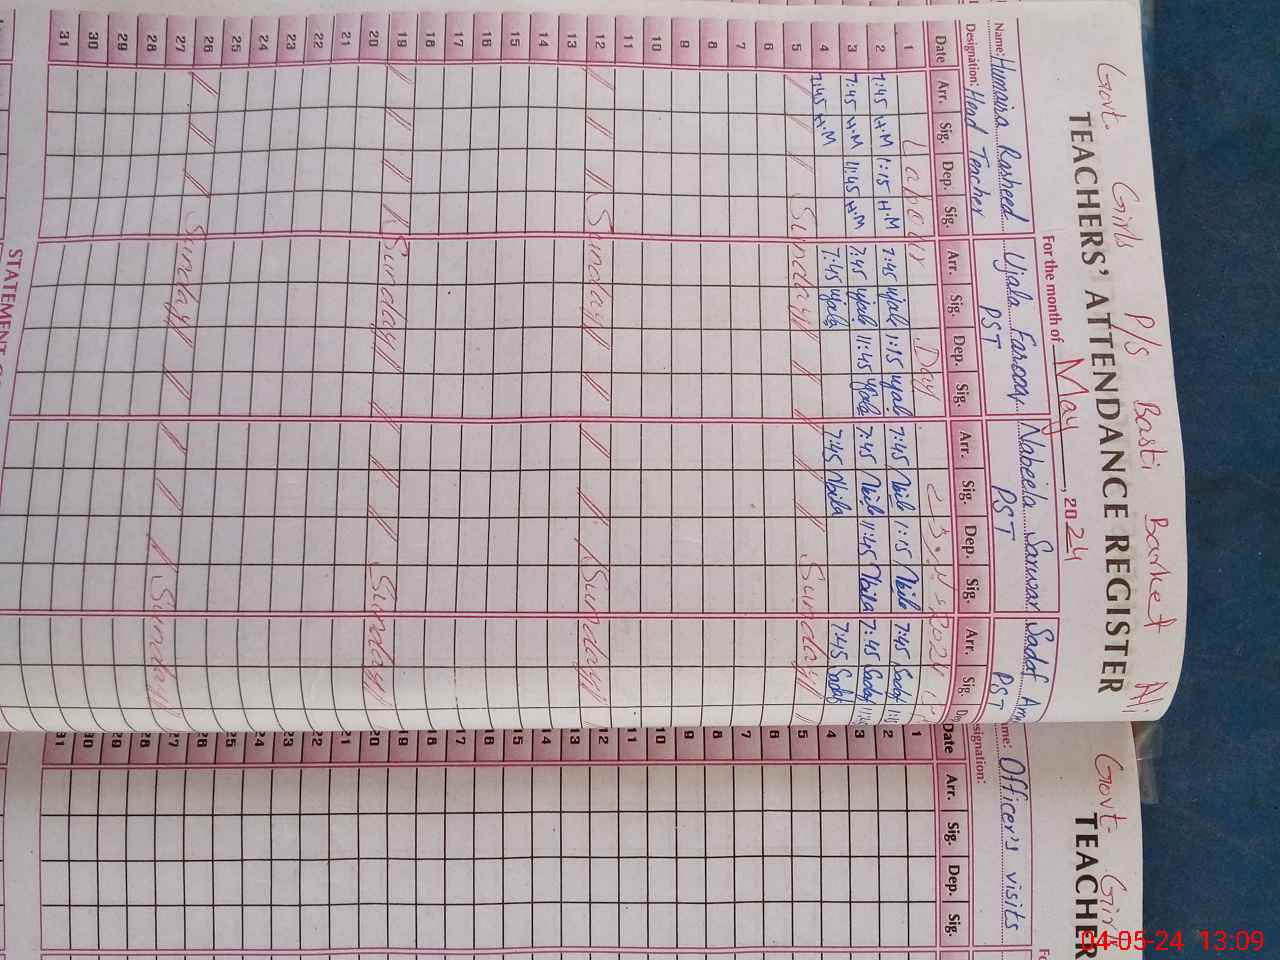 Govt. Girls P/S Basti Barket Ali
TEACHERS' ATTENDANCE REGISTER
For the month of May, 2024
Name: Humaira Rasheed Ujala Farooq Nabeela Sarwar Sadaf
Designation: Head Teacher PST PST PST
Date Arr. Sig. Dep. Sig. Arr. Sig. Dep. Sig. Arr. Sig. Dep. Sig. Arr. Sig.
1 Labour Day 2024
2 7:45 H.M 1:15 H.M 7:45 Ujala 1:15 Ujala 7:45 Nbila 1:15 Nbila 7:45 Sadaf
3 7:45 H.M 11:45 H.M 7:45 Ujala 11:45 Ujala 7:45 Nbila 11:45 Nbila 7:45 Sadaf
4 7:45 H.M 7:45 Ujala 7:45 Nbila 7:45 Sadaf
5 Sunday Sunday
6
7
8
9
10
11
12 Sunday Sunday
13
14
15
16
17
18
19 Sunday Sunday
20
21
22
23
24
25
26 Sunday Sunday
27
28
29
30
31
STATEMENT
Govt. Girls
TEACHER
Name: Officer's visits
Designation:
Date Arr. Sig. Dep. Sig.
1
2
3
4
5
6
7
8
9
10
11
12
13
14
15
16
17
18
19
20
21
22
23
24
25
26
27
28
29
30
31
04-05-24 13:09